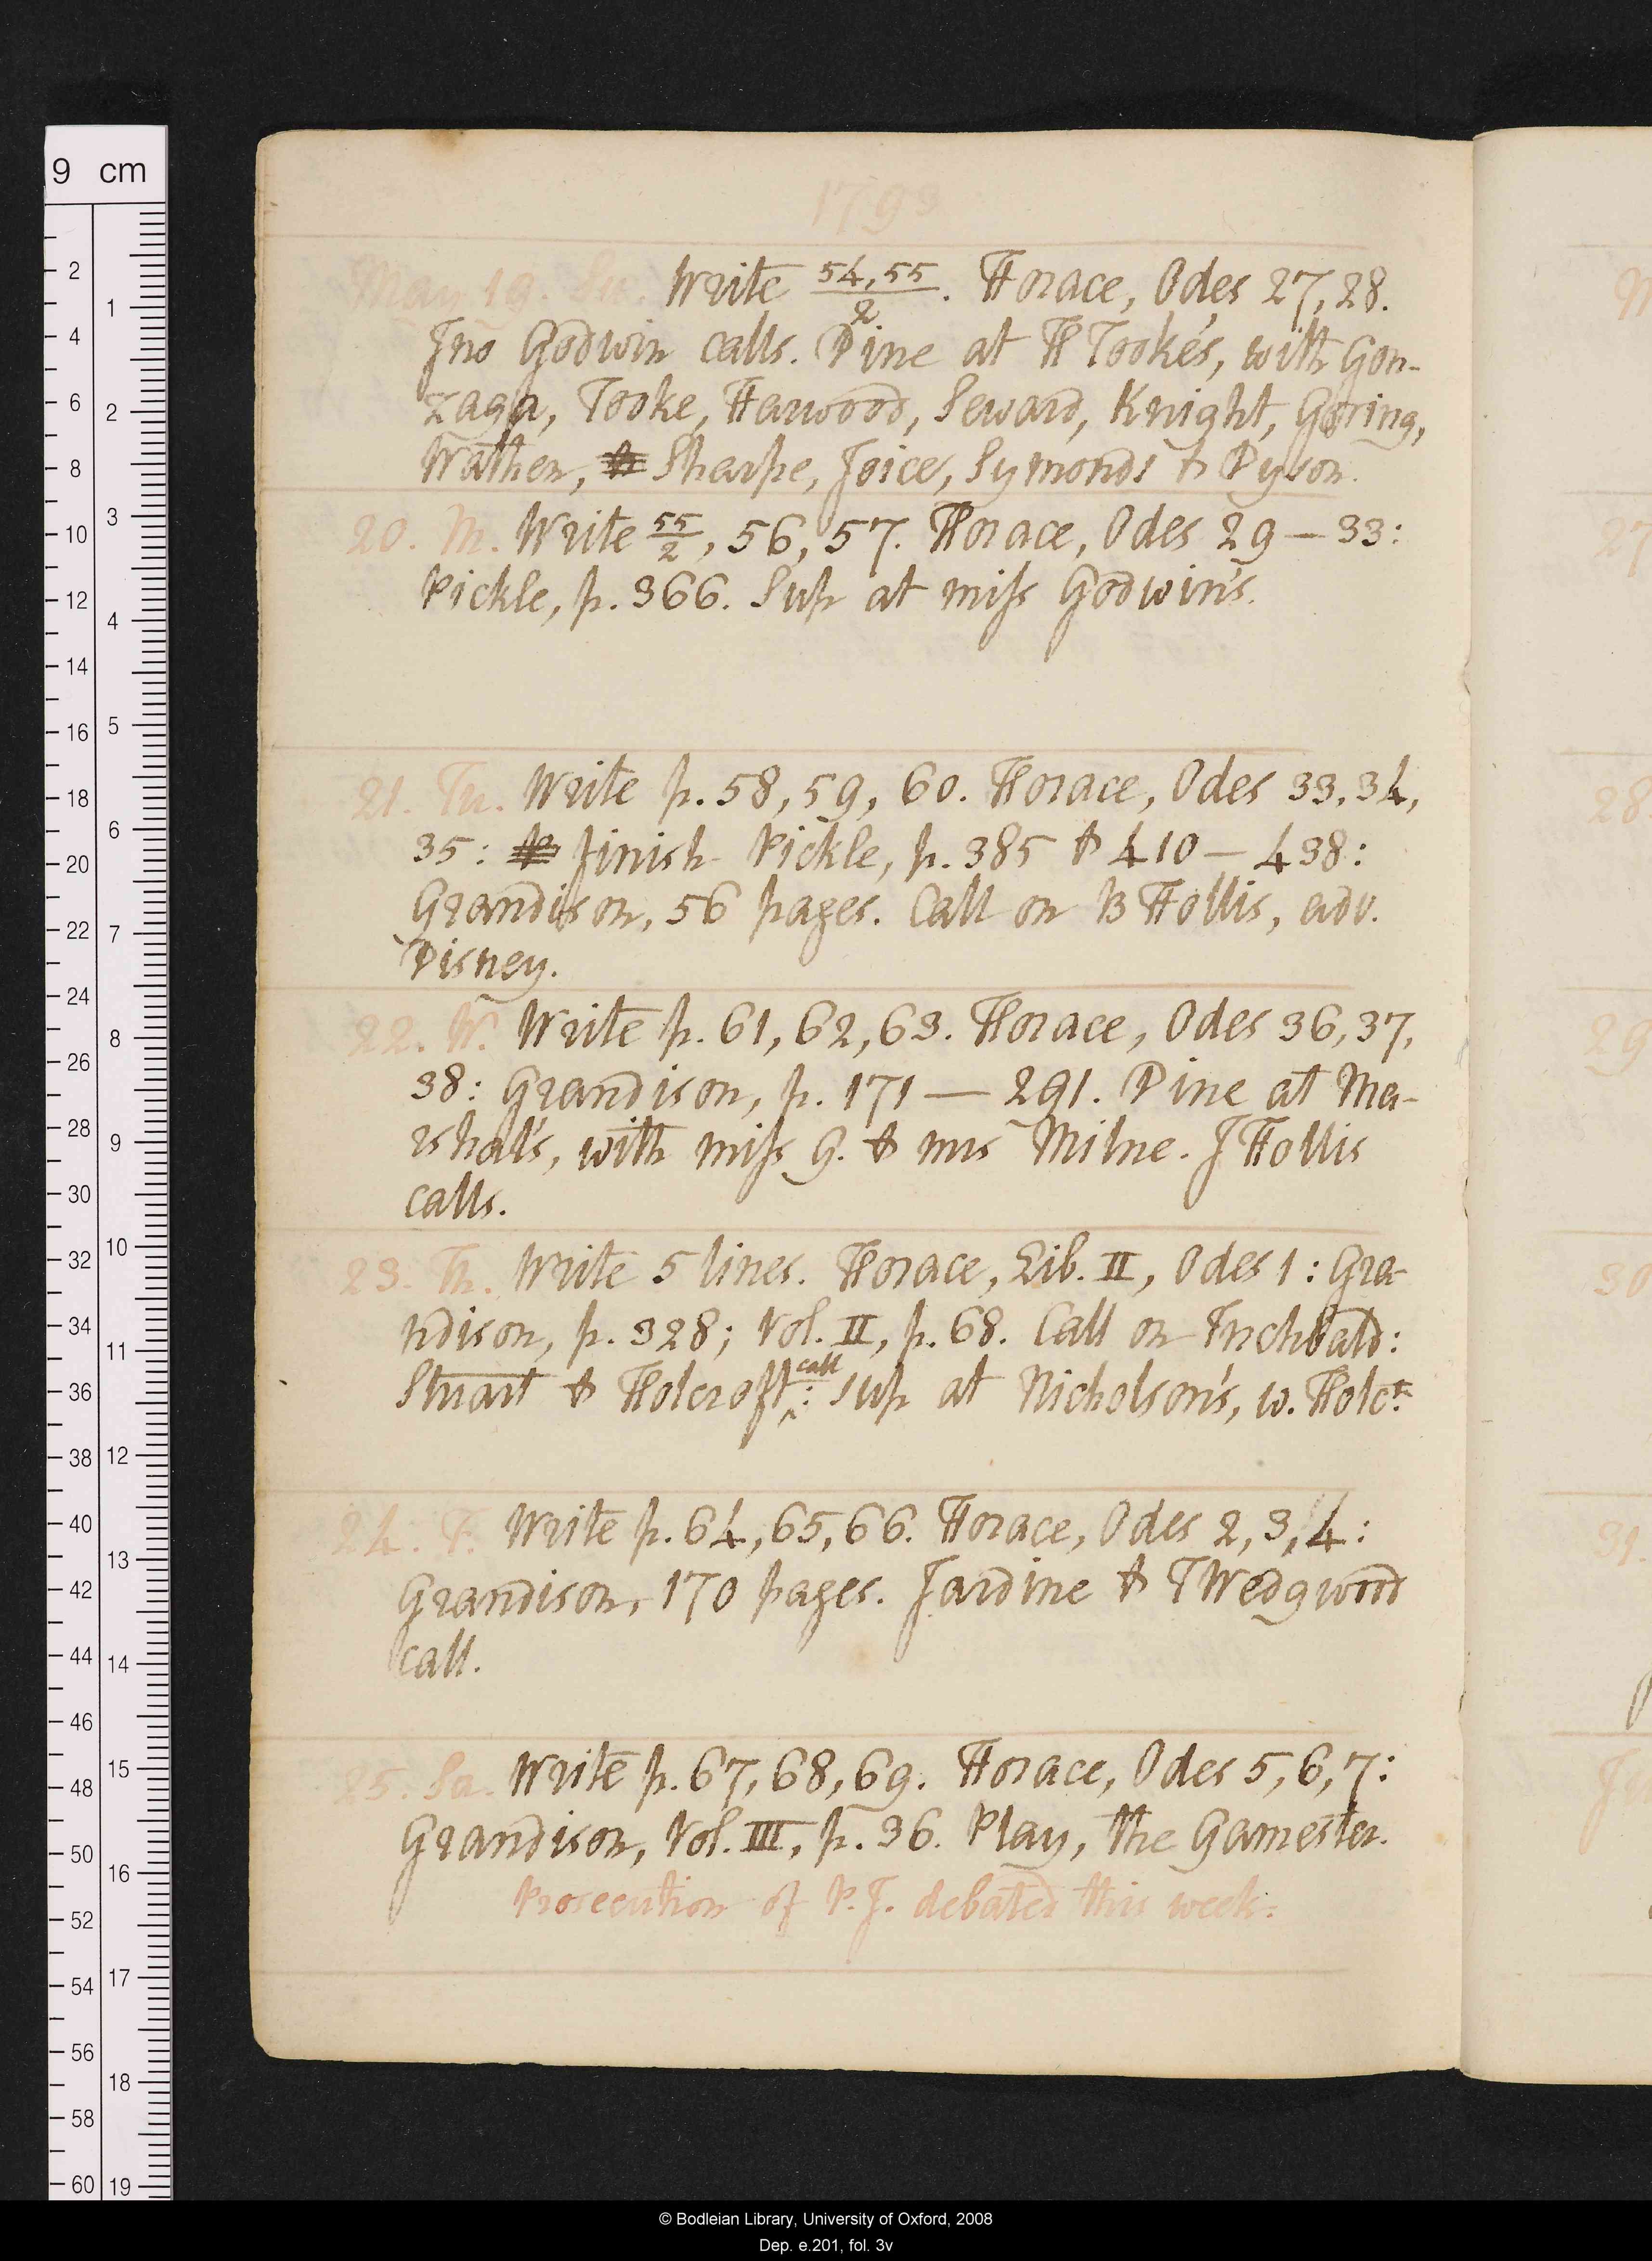 1793
May 19. Su. Write 54, 55/2. Horace, Odes 27, 28.
Jno Godwin calls. Dine at H Tooke's, with Gon-
zaga, Tooke, Harwood, Seward, Knight, Goring,
Wathen, Sharpe, Joice, Symonds & Dyson.
20. M. Write 55/2, 56, 57. Horace, Odes 29 — 33:
Pickle, p. 366. Sup at miss Godwin's.
21. Tu. Write p. 58, 59, 60. Horace, Odes 33, 34,
35: finish Pickle, p. 385 & 410 — 438:
Grandison, 56 pages. Call on B Hollis, adv.
Disney.
22. W. Write p. 61, 62, 63. Horace, Odes 36, 37,
38: Grandison, p. 171 — 291. Dine at Ma-
rshal's, with miss G. & mrs Milne. J Hollis
calls.
23. Th. Write 5 lines. Horace, Lib. II, Odes 1: Gra-
ndison, p. 328; Vol. II, p. 68. Call on Inchbald:
Stuart & Holcroft call: sup at Nicholson's, w. Holct.
24. F. Write p. 64, 65, 66. Horace, Odes 2, 3, 4:
Grandison, 170 pages. Jardine & T Wedgwood
call.
25. Sa. Write p. 67, 68, 69. Horace, Odes 5, 6, 7:
Grandison, Vol. III, p. 36. Play, the Gamester.
Prosecution of P.J. debated this week.
M
27
28
29
30
31.
9 cm
2
4
6
8
10
12
14
16
18
20
22
24
26
28
30
32
34
36
38
40
42
44
46
48
50
52
54
56
58
60
1
2
3
4
5
6
7
8
9
10
11
12
13
14
15
16
17
18
19
© Bodleian Library, University of Oxford, 2008
Dep. e.201, fol. 3v